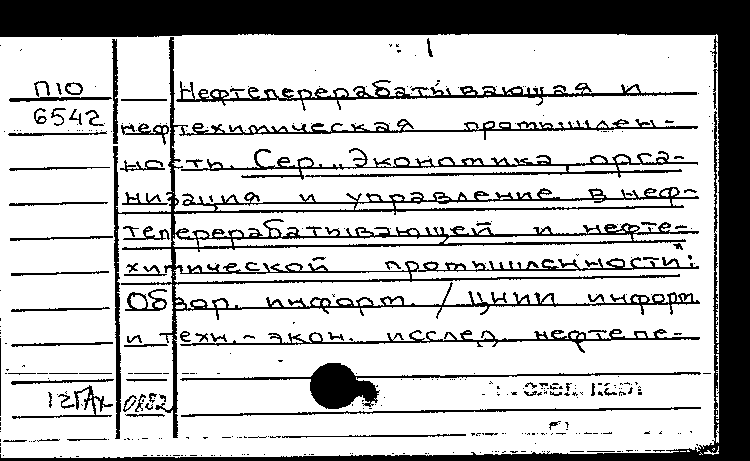 1
П10
6542
Нефтеперерабатывающая и
нефтехимическая промышлен-
ность. Сер. „Экономика, орга-
низация и управление в неф-
теперерабатывающей и нефте-
химической промышленности":
Обзор. информ. / ЦНИИ информ.
и техн.-экон. исслед. нефтепе-
0882
след. карт